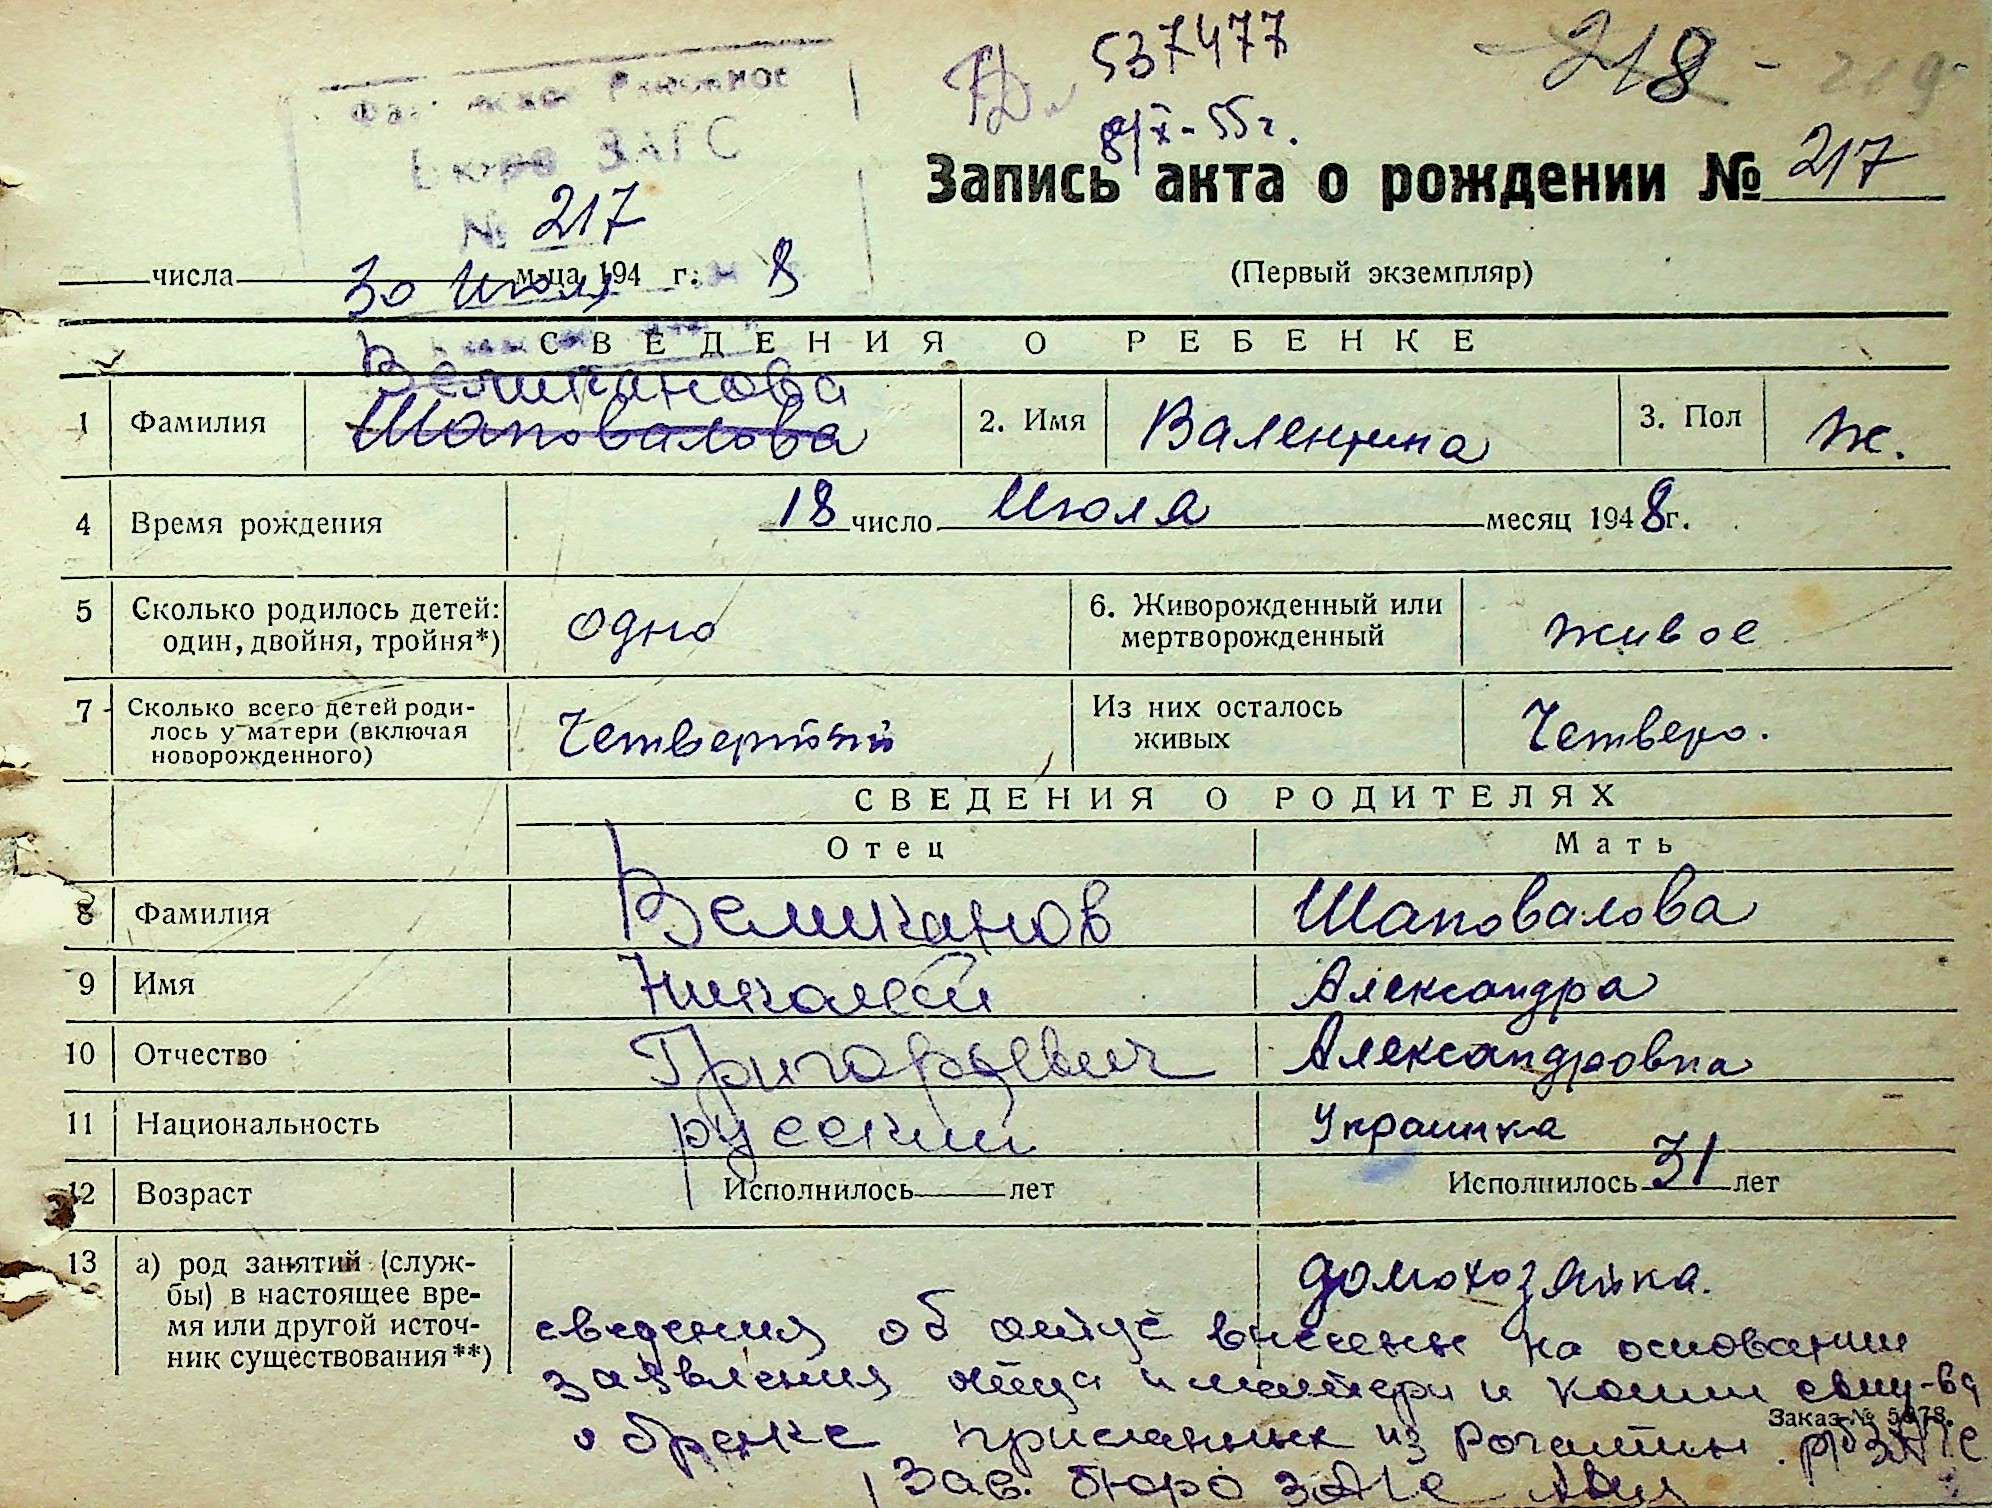 537477
218 - 219
8/X-55г.
Бюро ЗАГС
№ 217
Запись акта о рождении № 217
числа 30 Июля м-ца 194 г. 8
(Первый экземпляр)
СВЕДЕНИЯ О РЕБЕНКЕ
Великанова
1 Фамилия Шаповалова 2. Имя Валентина 3. Пол Ж.
4 Время рождения 18 число Июля месяц 1948г.
5 Сколько родилось детей: одно 6. Живорожденный или живое
один, двойня, тройня*) мертворожденный
7 Сколько всего детей роди- Четвертый Из них осталось Четверо.
лось у матери (включая живых
новорожденного)
СВЕДЕНИЯ О РОДИТЕЛЯХ
Отец Мать
8 Фамилия Великанов Шаповалова
9 Имя Николай Александра
10 Отчество Григорьевич Александровна
11 Национальность русский Украинка
12 Возраст Исполнилось лет Исполнилось 31 лет
13 а) род занятий (служ- домохозяйка.
бы) в настоящее вре-
мя или другой источ-
ник существования**)
сведения об отце внесены на основании
заявления отца и матери и копии свид-ва
о браке присланных из р/б ЗАГС
Заказ №
Зав. бюро ЗАГС